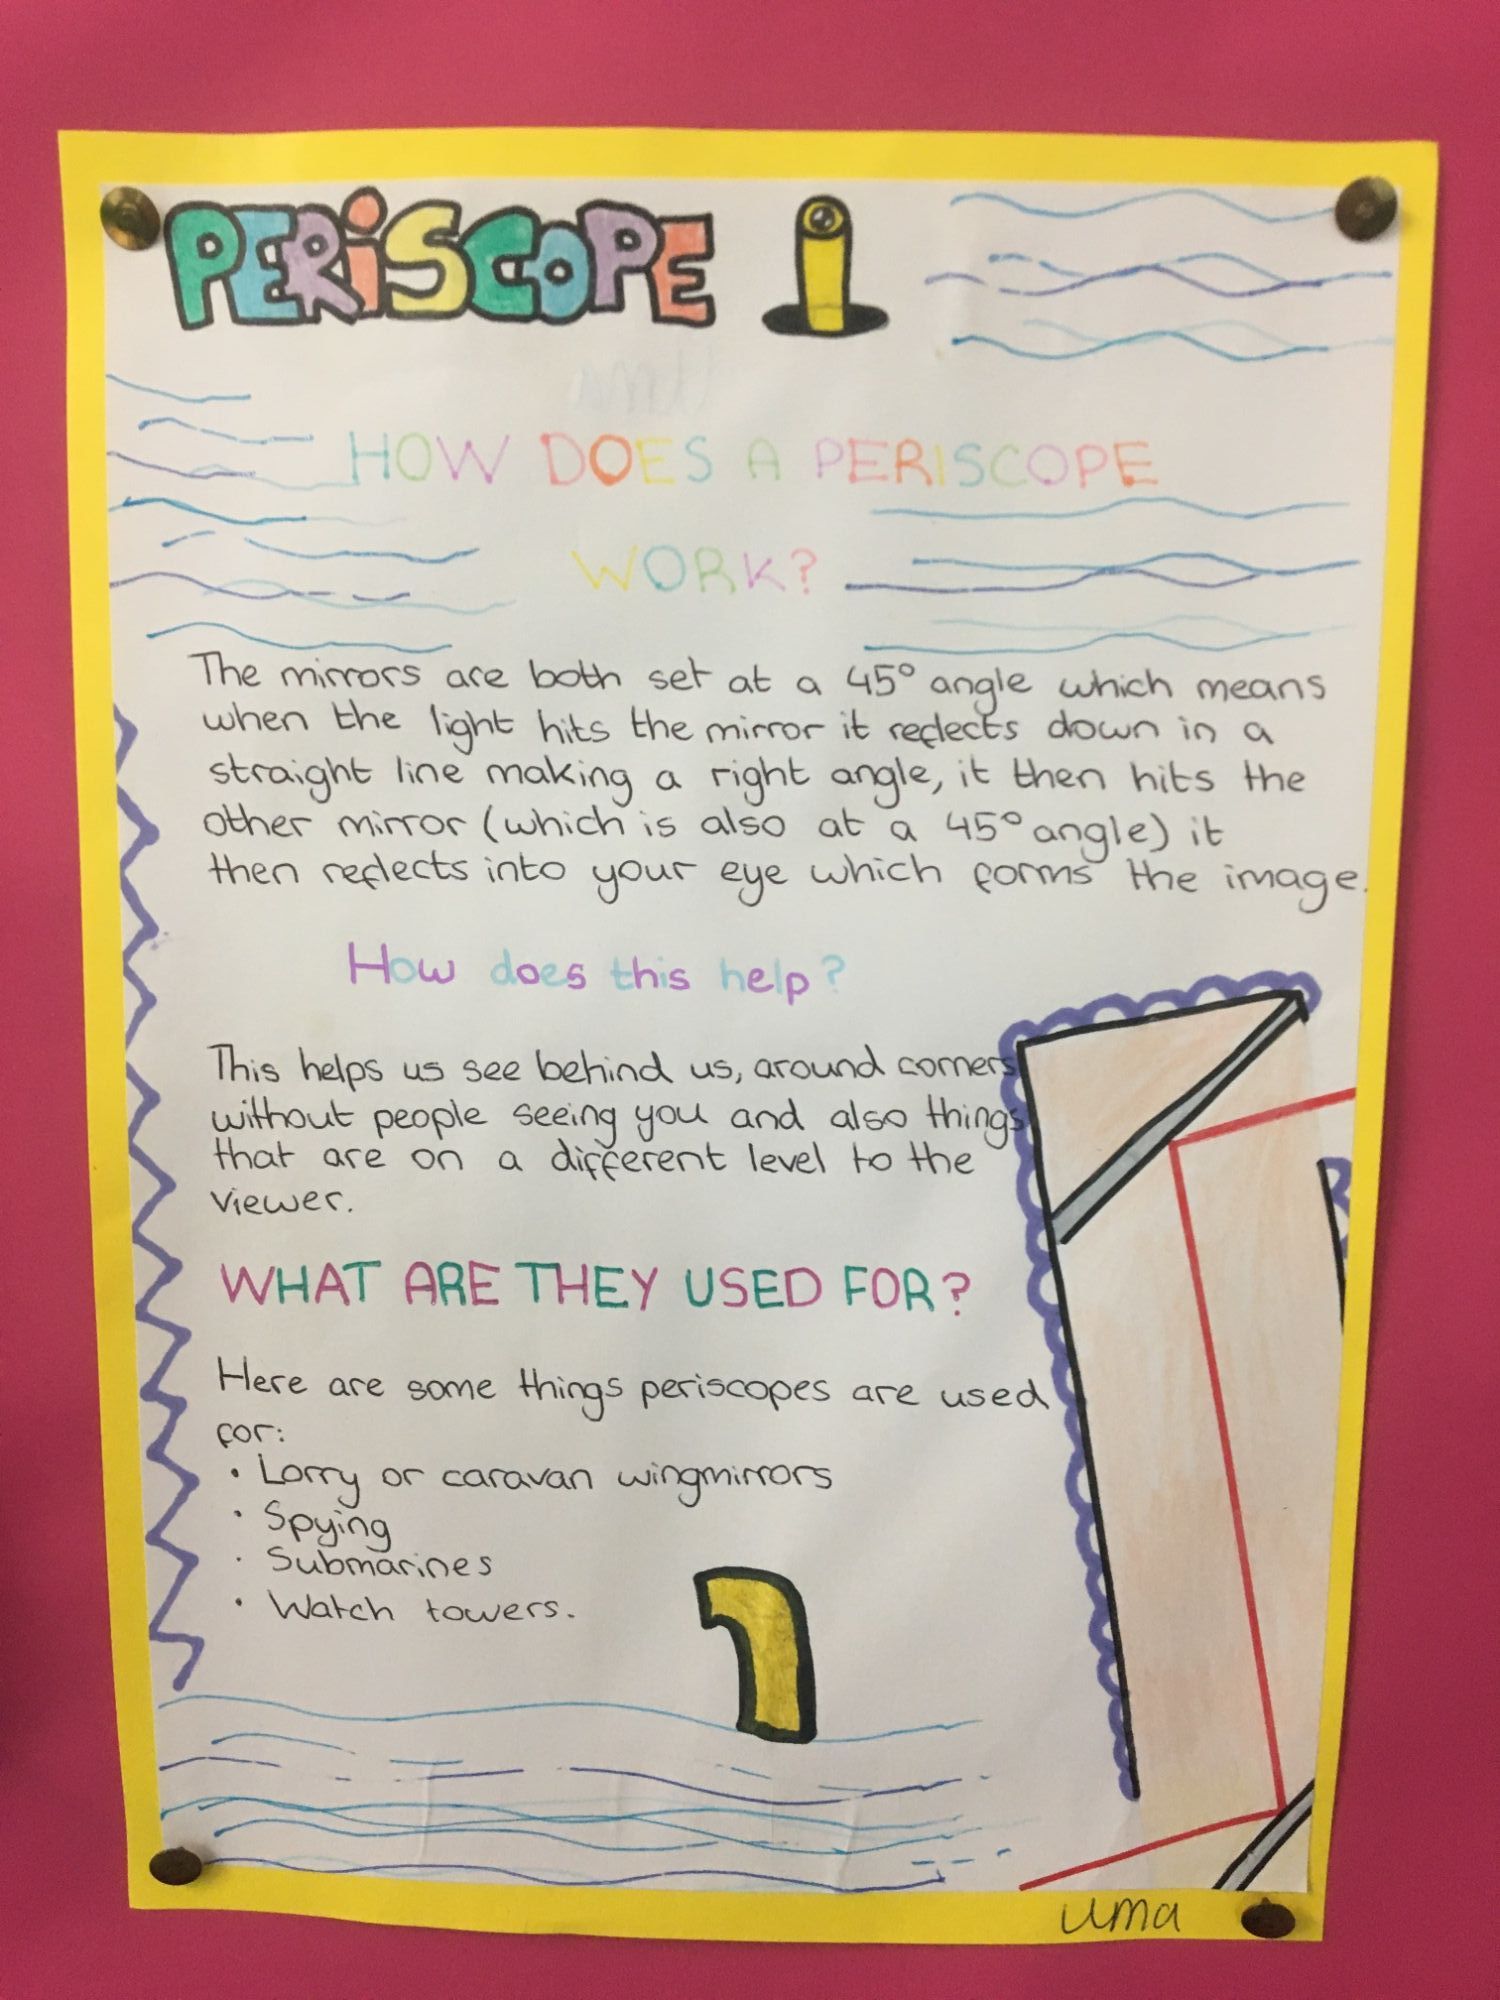 PERiSCOPE
HOW DOES A PERISCOPE
WORK?
The mirrors are both set at a 45° angle which means
when the light hits the mirror it reflects down in a
straight line making a right angle, it then hits the
other mirror (which is also at a 45° angle) it
then reflects into your eye which forms the image.
How does this help?
This helps us see behind us, around corners
without people seeing you and also things
that are on a different level to the
viewer.
WHAT ARE THEY USED FOR?
Here are some things periscopes are used
for:
• Lorry or caravan wingmirrors
• Spying
• Submarines
• Watch towers.
uma